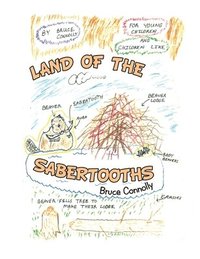 BY BRUCE
CONNOLLY
FOR YOUNG
CHILDREN,
AND
CHILDREN LIKE
LAND OF THE
BEAVER
SABERTOOTH
BEAVER
LODGE
BABY
BEAVERS
SABERTOOTHS
Bruce Connolly
BEAVER FELLS TREE TO
MAKE THEIR LODGE